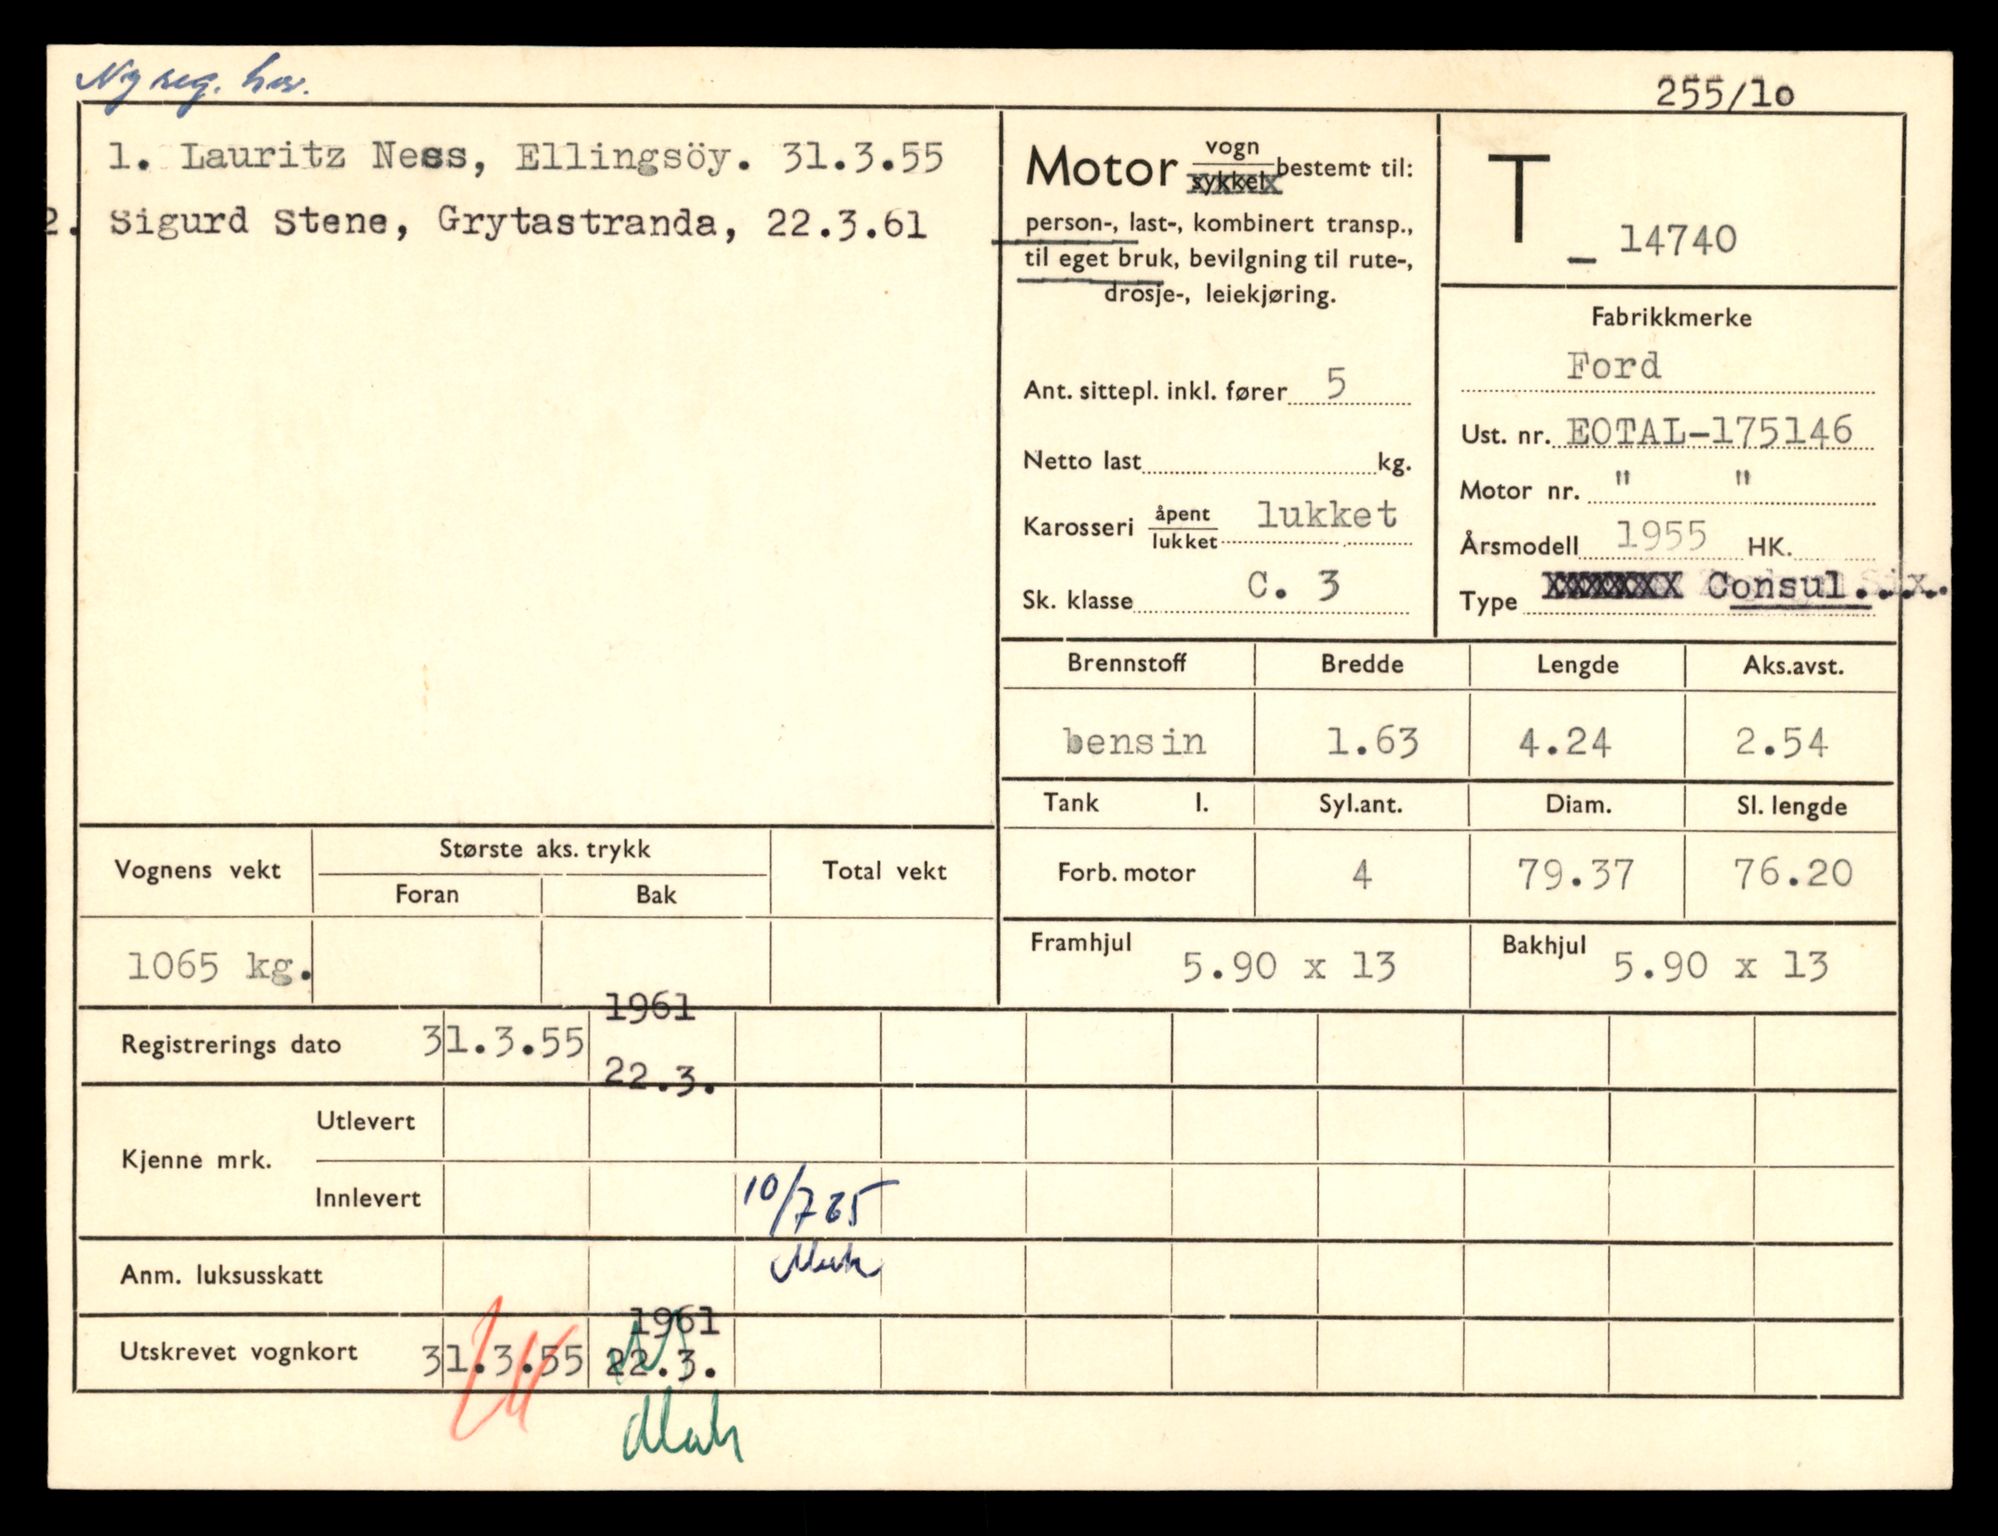 Ny reg.
255/10
1. Lauritz Ness, Ellingsöy. 31.3.55
2. Sigurd Stene, Grytastranda, 22.3.61
Motor vogn sykkel bestemt til:
person-, last-, kombinert transp.,
til eget bruk, bevilgning til rute-,
drosje-, leiekjøring.
Ant. sittepl. inkl. fører 5
Netto last kg.
Karosseri åpent lukket lukket
Sk. klasse C. 3
T - 14740
Fabrikkmerke
Ford
Ust. nr. EOTAL-175146
Motor nr. " "
Årsmodell 1955 HK.
Type XXXXXX Consul...
Brennstoff Bredde Lengde Aks.avst.
bensin 1.63 4.24 2.54
Tank l. Syl.ant. Diam. Sl. lengde
Forb. motor 4 79.37 76.20
Framhjul 5.90 x 13 Bakhjul 5.90 x 13
Vognens vekt Største aks. trykk Total vekt
Foran Bak
1065 kg.
1961
Registrerings dato 31.3.55 22.3.
Kjenne mrk. Utlevert
Innlevert 10/7 65
Anm. luksusskatt
1961
Utskrevet vognkort 31.3.55 22.3.